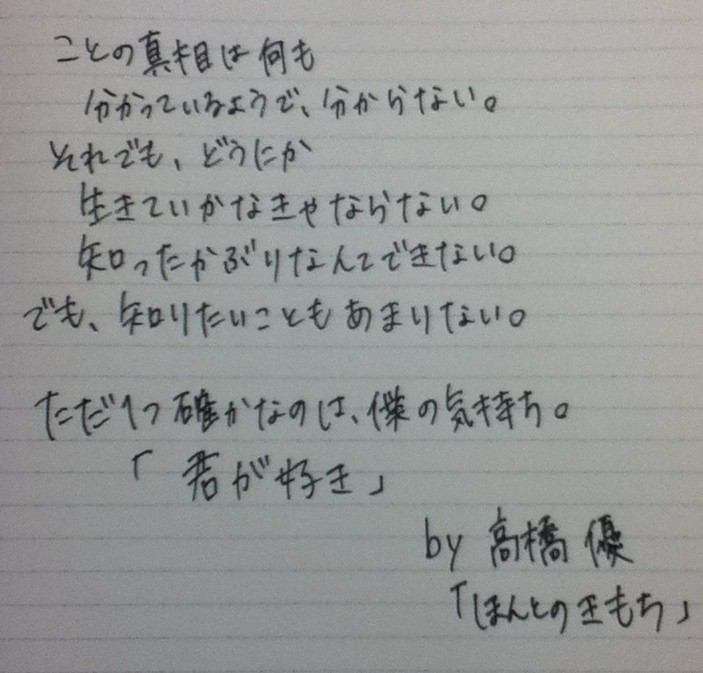 ことの真相は何も
分かっているようで、分からない。
それでも、どうにか
生きていかなきゃならない。
知ったかぶりなんてできない。
でも、知りたいこともあまりない。
ただ1つ確かなのは、僕の気持ち。
「君が好き」
by 高橋 優
「ほんとのきもち」